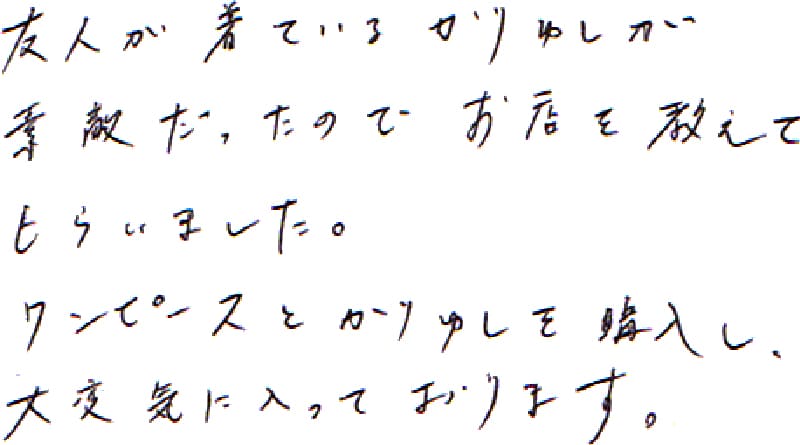 友人が着ているかりゆしが
素敵だったのでお店を教えて
もらいました。
ワンピースとかりゆしを購入し、
大変気に入っております。